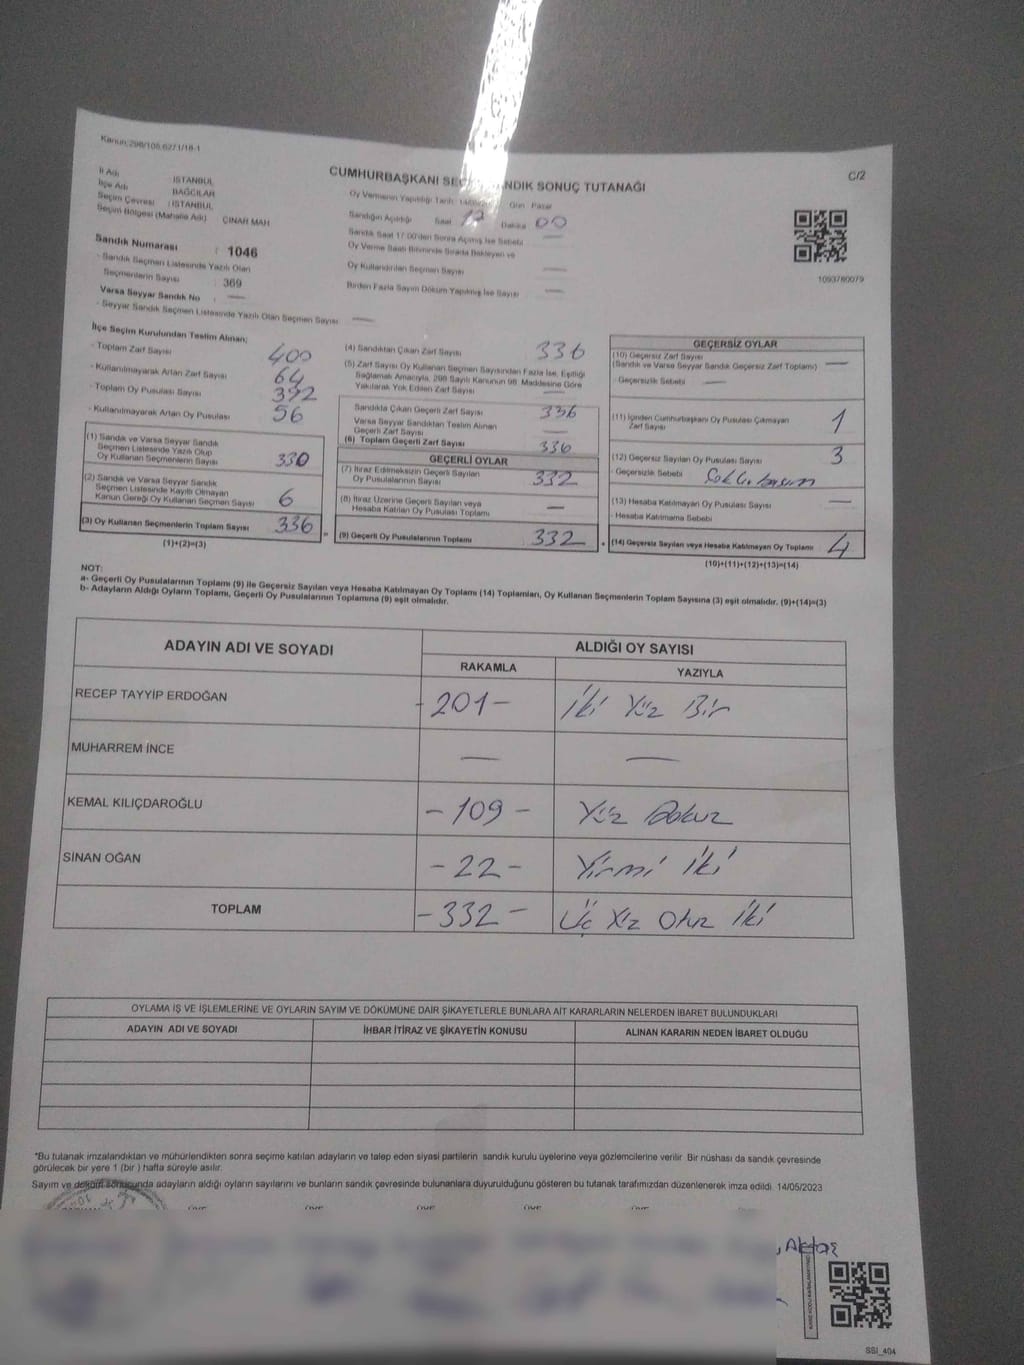 Kanun:298/105,627/1/18-1
C/2
CUMHURBAŞKANI SEÇ NDIK SONUÇ TUTANAĞI
İl Adı : İSTANBUL
İlçe Adı BAĞCILAR
Seçim Çevresi : İSTANBUL
Seçim Bölgesi (Mahalle Adı) ÇINAR MAH
Oy Vermenin Yapıldığı Tarih Gün Pazar
Sandığın Açıldığı Saat 17 Dakika 00
Sandık Saat 17:00'den Sonra Açılmış İse Sebebi —
Oy Verme Saati Bitiminde Sırada Bekleyen ve
Oy Kullandırılan Seçmen Sayısı —
Birden Fazla Sayım Döküm Yapılmış İse Sayısı —
1093780079
Sandık Numarası : 1046
- Sandık Seçmen Listesinde Yazılı Olan
Seçmenlerin Sayısı : 369
Varsa Seyyar Sandık No : —
- Seyyar Sandık Seçmen Listesinde Yazılı Olan Seçmen Sayısı —
İlçe Seçim Kurulundan Teslim Alınan;
- Toplam Zarf Sayısı 400
- Kullanılmayarak Artan Zarf Sayısı 64
- Toplam Oy Pusulası Sayısı 392
- Kullanılmayarak Artan Oy Pusulası 56
(1) Sandık ve Varsa Seyyar Sandık
Seçmen Listesinde Yazılı Olup
Oy Kullanan Seçmenlerin Sayısı 330
(2) Sandık ve Varsa Seyyar Sandık
Seçmen Listesinde Kayıtlı Olmayan
Kanun Gereği Oy Kullanan Seçmen Sayısı 6
(3) Oy Kullanan Seçmenlerin Toplam Sayısı 336
(1)+(2)=(3)
(4) Sandıktan Çıkan Zarf Sayısı 336
(5) Zarf Sayısı Oy Kullanan Seçmen Sayısından Fazla İse, Eşitliği
Sağlamak Amacıyla, 298 Sayılı Kanunun 98. Maddesine Göre
Yakılarak Yok Edilen Zarf Sayısı —
Sandıkta Çıkan Geçerli Zarf Sayısı 336
Varsa Seyyar Sandıktan Teslim Alınan
Geçerli Zarf Sayısı —
(6) Toplam Geçerli Zarf Sayısı 336
GEÇERLİ OYLAR
(7) İtiraz Edilmeksizin Geçerli Sayılan
Oy Pusulalarının Sayısı 332
(8) İtiraz Üzerine Geçerli Sayılan veya
Hesaba Katılan Oy Pusulası Toplamı —
= (9) Geçerli Oy Pusulalarının Toplamı 332
GEÇERSİZ OYLAR
(10) Geçersiz Zarf Sayısı
(Sandık ve Varsa Seyyar Sandık Geçersiz Zarf Toplamı) —
- Geçersizlik Sebebi —
(11) İçinden Cumhurbaşkanı Oy Pusulası Çıkmayan
Zarf Sayısı 1
(12) Geçersiz Sayılan Oy Pusulası Sayısı 3
- Geçersizlik Sebebi
(13) Hesaba Katılmayan Oy Pusulası Sayısı —
- Hesaba Katılmama Sebebi
+ (14) Geçersiz Sayılan veya Hesaba Katılmayan Oy Toplamı 4
(10)+(11)+(12)+(13)=(14)
NOT:
a- Geçerli Oy Pusulalarının Toplamı (9) ile Geçersiz Sayılan veya Hesaba Katılmayan Oy Toplamı (14) Toplamları, Oy Kullanan Seçmenlerin Toplam Sayısına (3) eşit olmalıdır. (9)+(14)=(3)
b- Adayların Aldığı Oyların Toplamı, Geçerli Oy Pusulalarının Toplamına (9) eşit olmalıdır.
ADAYIN ADI VE SOYADI ALDIĞI OY SAYISI
RAKAMLA YAZIYLA
RECEP TAYYİP ERDOĞAN -201- İki Yüz Bir
MUHARREM İNCE — —
KEMAL KILIÇDAROĞLU -109- Yüz Dokuz
SİNAN OĞAN -22- Yirmi İki
TOPLAM -332- Üç Yüz Otuz İki
OYLAMA İŞ VE İŞLEMLERİNE VE OYLARIN SAYIM VE DÖKÜMÜNE DAİR ŞİKAYETLERLE BUNLARA AİT KARARLARIN NELERDEN İBARET BULUNDUKLARI
ADAYIN ADI VE SOYADI İHBAR İTİRAZ VE ŞİKAYETİN KONUSU ALINAN KARARIN NEDEN İBARET OLDUĞU
*Bu tutanak imzalandıktan ve mühürlendikten sonra seçime katılan adayların ve talep eden siyasi partilerin sandık kurulu üyelerine veya gözlemcilerine verilir. Bir nüshası da sandık çevresinde
görülecek bir yere 1 (bir ) hafta süreyle asılır.
Sayım ve döküm sonucunda adayların aldığı oyların sayılarını ve bunların sandık çevresinde bulunanlara duyurulduğunu gösteren bu tutanak tarafımızdan düzenlenerek imza edildi. 14/05/2023
Aktaş
SSI_404